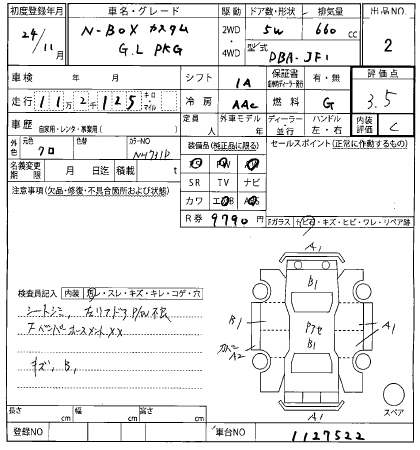 初度登録年月 車名・グレード 駆動 ドア数・形状 排気量 出品NO
24/11月 N-BOX カスタム G.L PKG 2WD・4WD 5W 660cc 2
型式 DBA-JF1
車検 年 月 シフト IA 保証書 有・無 評価点
走行 11万2千125 キロ・マイル 冷房 AAC 燃料 G 3.5
車歴 自家用・レンタ・事業用( ) 定員 人 外車モデル 年 ディーラー・並行 ハンドル 左・右 内装評価 C
外色 元色 クロ 色替 カラーNO NH731P 装備品(純正品に限る) セールスポイント(正常に作動するもの)
名義変更期限 月 日迄 積載 t SR TV ナビ
注意事項(欠品・修復・不具合箇所および状態) カワ
R券 9790円 Fガラス トビ石・キズ・ヒビ・ワレ・リペア跡
A1
B1
検査員記入 内装 ・スレ・キズ・キレ・コゲ・穴
シートシミ、左リアドアP/W不良
B1 A1
A2
B1
キズ、B1
A1
スペア
長さ cm 幅 cm 高さ cm
登録NO 車台NO 1127522